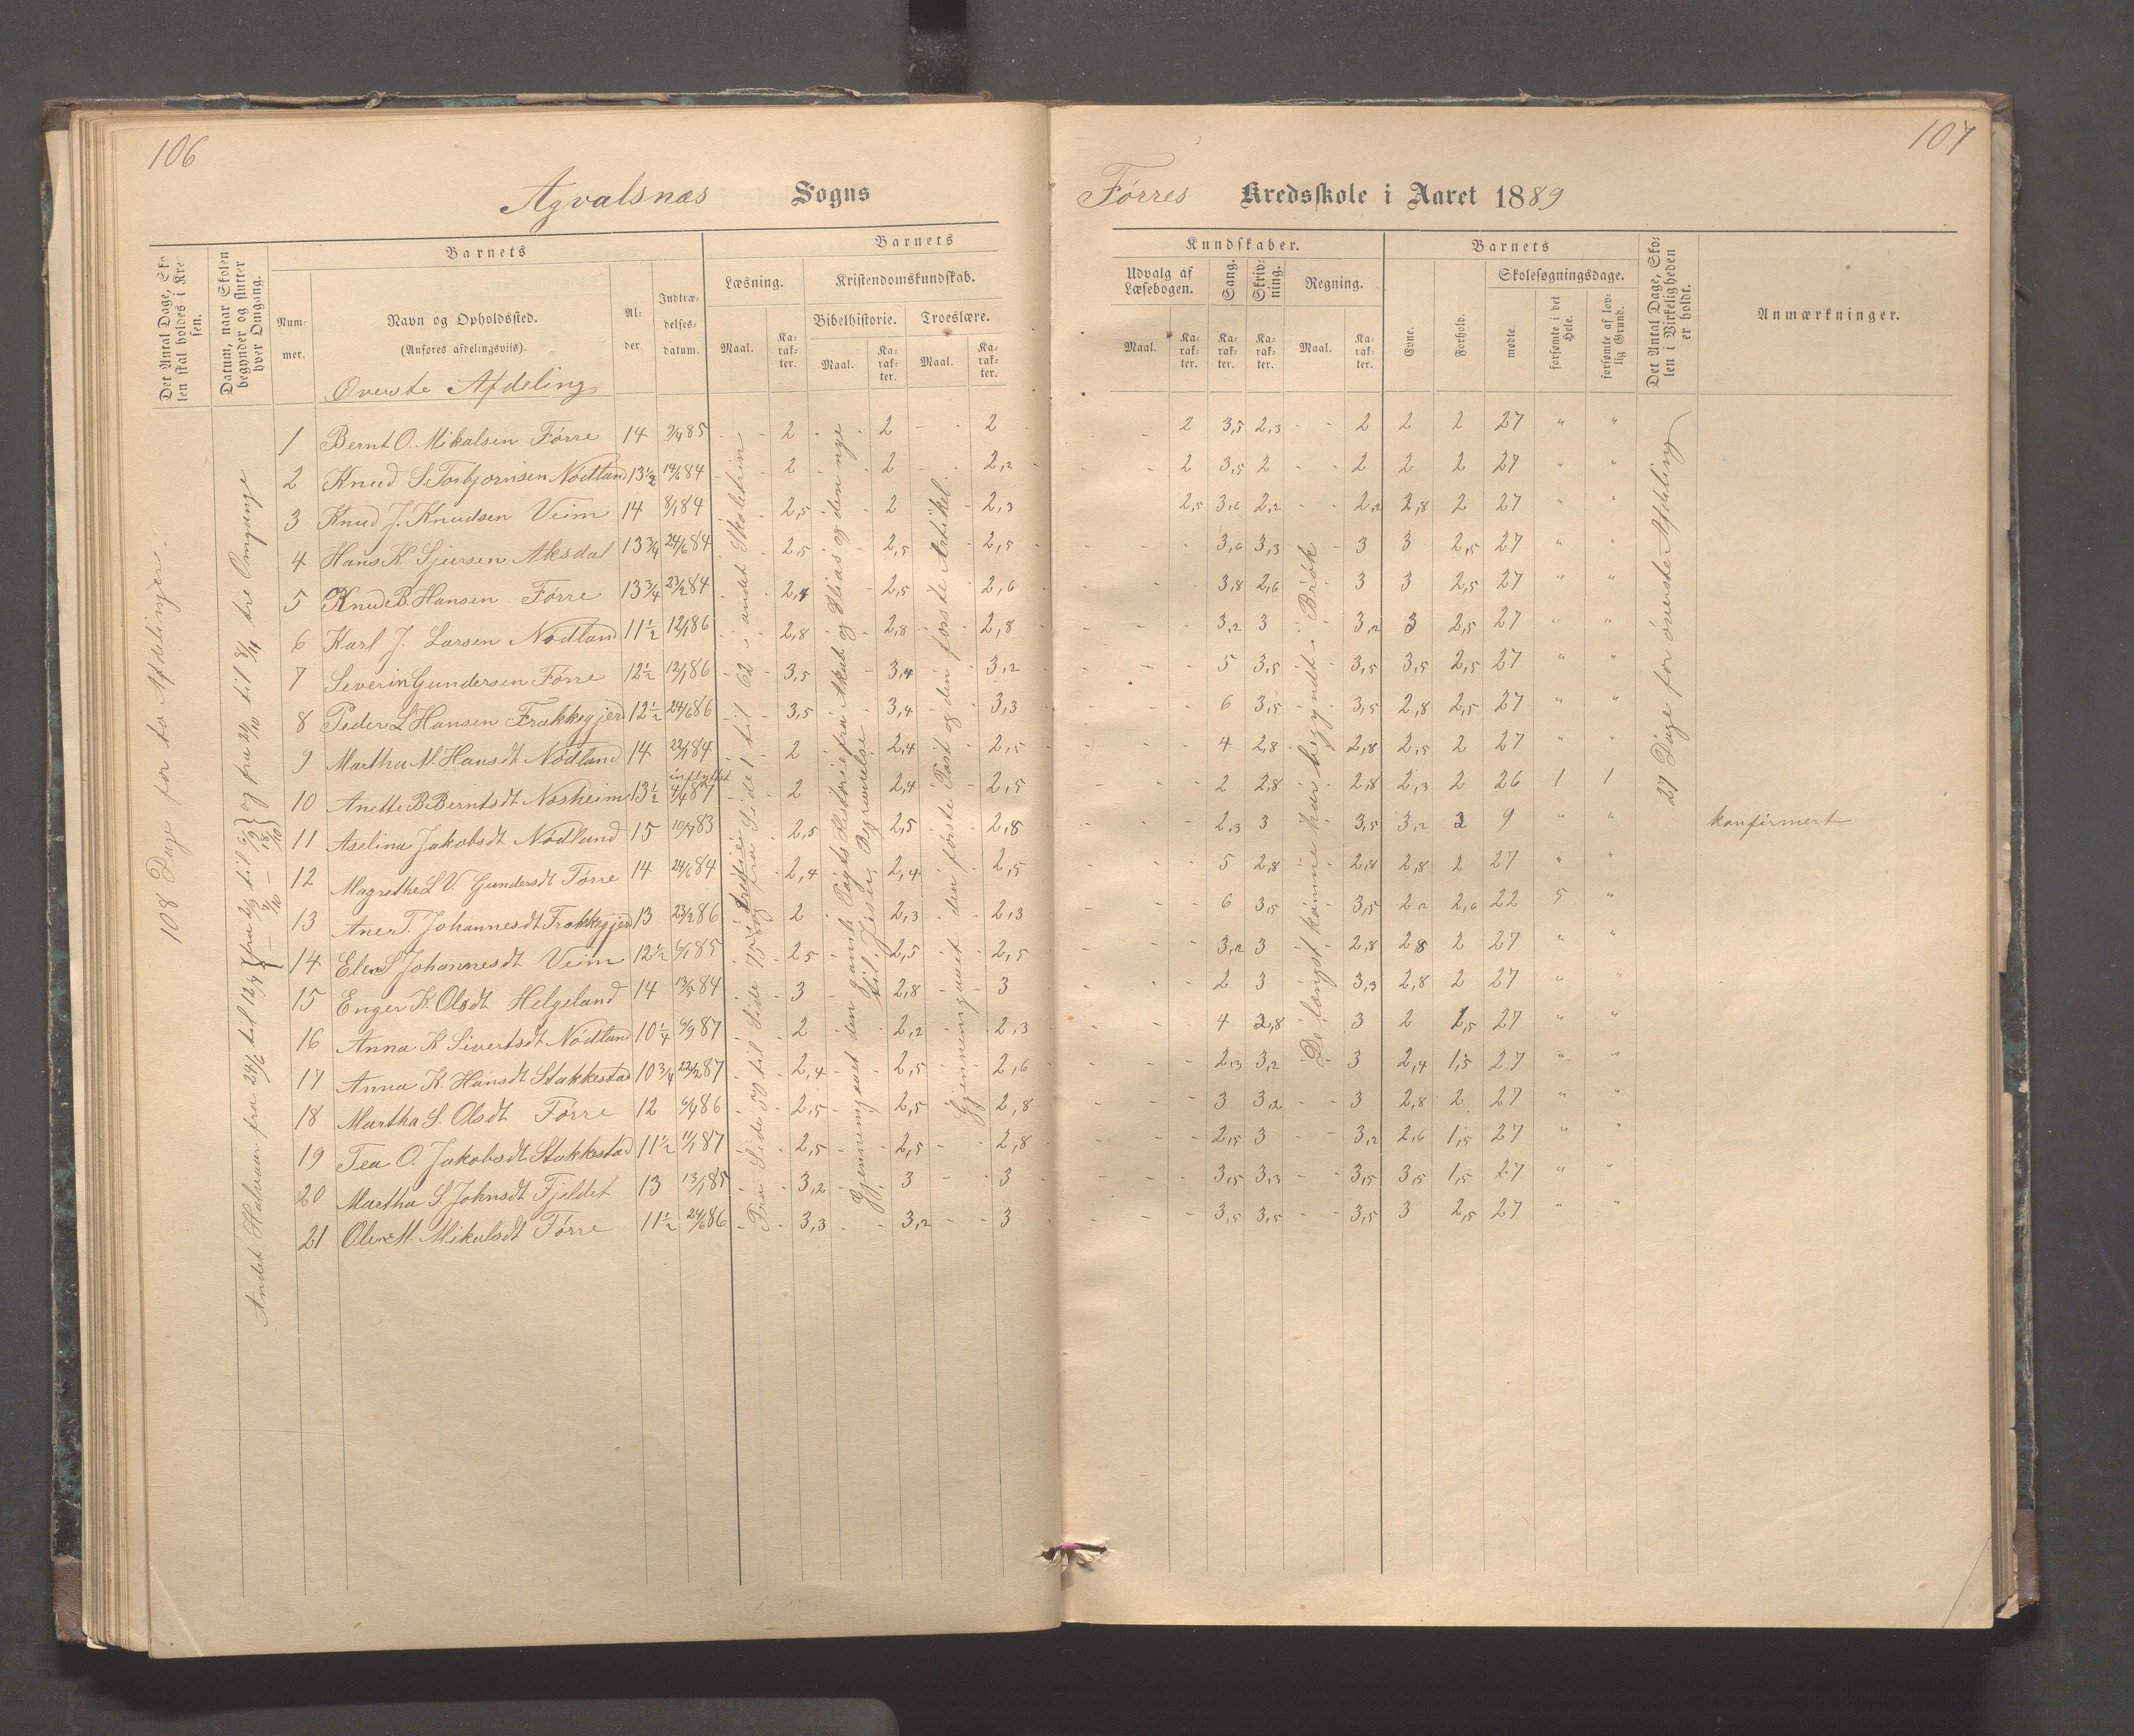 106
Agvalsnæs Sogns
Det Antal Dage, Sko-
len skal holdes i Kre-
sen.
Datum, naar Skolen
begynder og slutter
hver Omgang.
Barnets
Num-
mer.
Navn og Opholdssted.
(Anføres afdelingsviis).
Øverste Afdeling
Al-
der.
Indtræ-
delses-
datum.
Barnets
Læsning.
Maal.
Ka-
rak-
ter.
Kristendomskundskab.
Bibelhistorie.
Maal.
Ka-
rak-
ter.
Troeslære.
Maal.
Ka-
rak-
ter.
108 Dage for to Afdelinger.
Andet Halvaar fra 24/6 til 12/7
og fra 21/10 til 8/11 tre Omgange
1 Bernt O. Mikalsen Førre 14 9/4 85 2 2 2
2 Knud S. Torbjørnsen Nødland 13½ 14/6 84 2 2 2,2
3 Knud J. Knudsen Veim 14 8/1 84 2,5 2 2,3
4 Hans K. Sjursen Aksdal 13¾ 24/6 84 2,5 2,5 2,5
5 Knud B. Hansen Førre 13¾ 23/2 84 2,4 2,5 2,6
6 Karl J. Larsen Nødland 11½ 12/1 86 2,8 2,8 2,8
7 Severin Gundersen Førre 12½ 12/1 86 3,5 3,4 3,2
8 Peder L Hansen Frakkegjerd 12½ 24/6 86 3,5 3,4 3,3
9 Martha M. Hansdt Nødland 14 22/1 84 2 2,4 2,5
indflyttet
10 Anette B Berntsdt Nosheim 13½ 4/4 87 2 2,4 2,5
11 Aselina Jakobsdt Nødland 15 10/7 83 2,5 2,5 2,8
12 Magrethe L V. Gundersdt Førre 14 24/6 84 2,4 2,4 2,5
13 Aner T. Johannesdt Frakkegjerd 13 23/2 86 2 2,3 2,3
14 Elen S Johannesdt Veim 12½ 6/1 85 2,5 2,5 2,5
15 Enger K. Olsdt Helgeland 14 13/5 84 3 2,8 3
16 Anna K Sivertsdt Nødland 10¼ 6/9 87 2 2,2 2,3
17 Anna K. Hansdt Stakkestad 10¾ 22/2 87 2,4 2,5 2,6
18 Martha S. Olsdt Førre 12 6/4 86 2,5 2,5 2,8
19 Tea O. Jakobsdt Stakkestad 11½ 11/1 87 2,5 2,5 2,8
20 Martha S. Johnsdt Fjeldet 13 13/1 85 3,2 3 3
21 Olene M. Mikalsdt Førre 11½ 24/6 86 3,3 3,2 3
Fra Side 59 til Side 75 i tredie og fra Side 1 til 62 i andet Skoletrin
Gjennemgaaet den gamle Pagts Historie fra Akab og Elias og den nye
til Jesu Begravelse
Gjennemgaaet den første Part og den første Artikel.
107
Førres Kredsskole i Aaret 1889
Kundskaber.
Udvalg af
Læsebogen.
Maal.
Ka-
rak-
ter.
Sang.
Ka-
rak-
ter.
Skriv-
ning.
Ka-
rak-
ter.
Regning.
Maal.
Ka-
rak-
ter.
Barnets
Evne.
Forhold.
Skolesøgningsdage.
mødte.
forsømte i det
Hele.
forsømte af lov-
lig Grund.
Det Antal Dage, Sko-
len i Virkeligheden
er holdt.
Anmærkninger.
2 3,5 2,3 2 2 2 27 " "
2 3,5 2 2 2 2 27 " "
2,5 3,6 2,2 2,2 2,8 2 27 " "
3,6 3,3 3 3 2,5 27 " "
3,8 2,6 3 3 2,5 27 " "
3,2 3 3,2 3 2,5 27 " "
5 3,5 3,5 3,5 2,5 27 " "
6 3,5 3,5 2,8 2,5 27 " "
4 2,8 2,8 2,5 2 27 " "
2 2,8 2,8 2,3 2 26 1 1
2,3 3 3,5 3,2 2 9 " " konfirmert
5 2,8 2,8 2,8 2 27 " "
6 3,5 3,5 2,2 2,6 22 5 "
3,2 3 2,8 2,8 2 27 " "
2 3 3,3 2,8 2 27 " "
4 2,8 3 2 1,5 27 " "
2,3 3,2 3 2,4 1,5 27 " "
3 3,2 3 2,8 2 27 " "
2,5 3 3,2 2,6 1,5 27 " "
3,5 3,3 3,5 3,5 1,5 27 " "
3,5 3,5 3,5 3 2,5 27 " "
De længst komne har begyndt i Brøk
27 Dage for øverste Afdeling